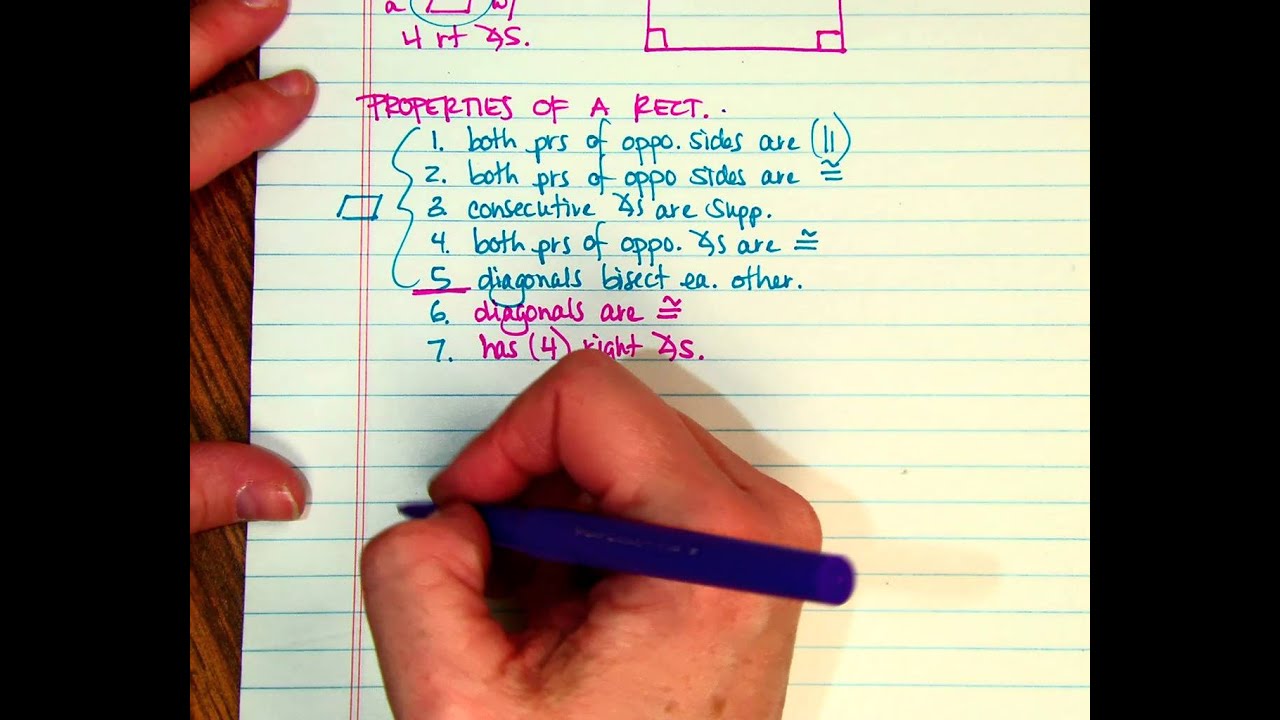 a ▱ w/
4 rt ∡s.
PROPERTIES OF A RECT.
1. both prs of oppo. sides are (||)
2. both prs of oppo sides are ≅
3. consecutive ∡s are supp.
4. both prs of oppo. ∡s are ≅
5 diagonals bisect ea. other.
6. diagonals are ≅
7. has (4) right ∡s.